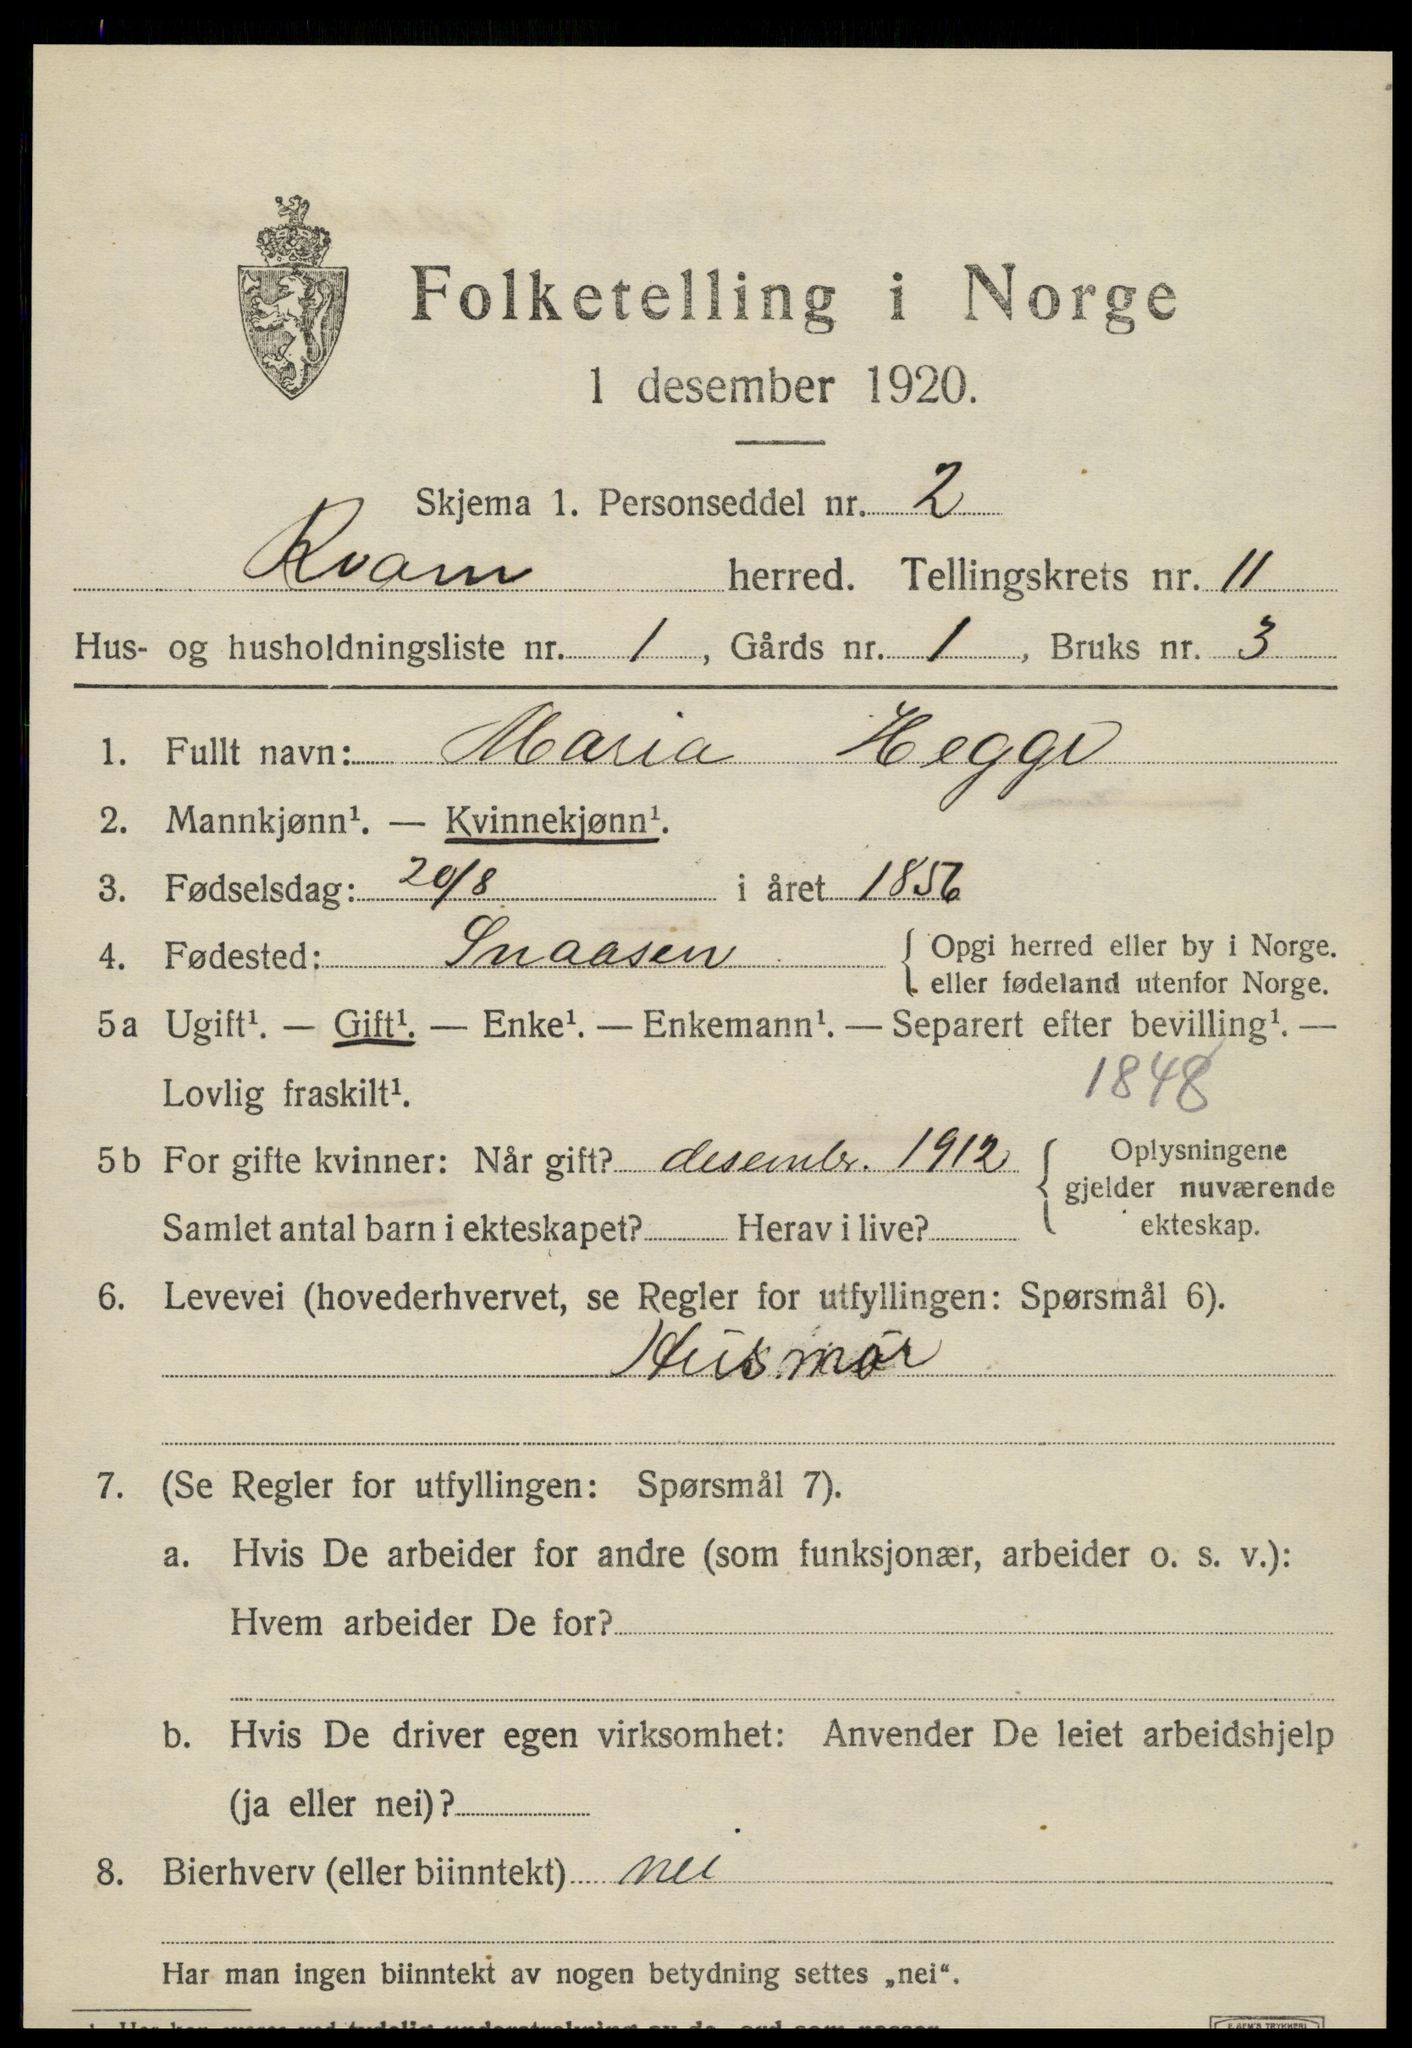 Folketelling i Norge
1 desember 1920.
Skjema 1. Personseddel nr. 2
Kvam herred. Tellingskrets nr. 11
Hus- og husholdningsliste nr. 1, Gårds nr. 1, Bruks nr. 3
1. Fullt navn: Maria Hegge
2. Mannkjønn¹. — Kvinnekjønn¹.
3. Fødselsdag: 20/8 i året 1856
4. Fødested: Snaasen { Opgi herred eller by i Norge.
eller fødeland utenfor Norge.
5a Ugift¹. — Gift¹. — Enke¹. — Enkemann¹. — Separert efter bevilling¹. —
Lovlig fraskilt¹. 1848
5b For gifte kvinner: Når gift? desembr. 1912 { Oplysningene
gjelder nuværende
Samlet antal barn i ekteskapet? Herav i live? ekteskap.
6. Levevei (hovederhvervet, se Regler for utfyllingen: Spørsmål 6).
Husmor
7. (Se Regler for utfyllingen: Spørsmål 7).
a. Hvis De arbeider for andre (som funksjonær, arbeider o. s. v.):
Hvem arbeider De for?
b. Hvis De driver egen virksomhet: Anvender De leiet arbeidshjelp
(ja eller nei)?
8. Bierhverv (eller biinntekt) nei
Har man ingen biinntekt av nogen betydning settes „nei“.